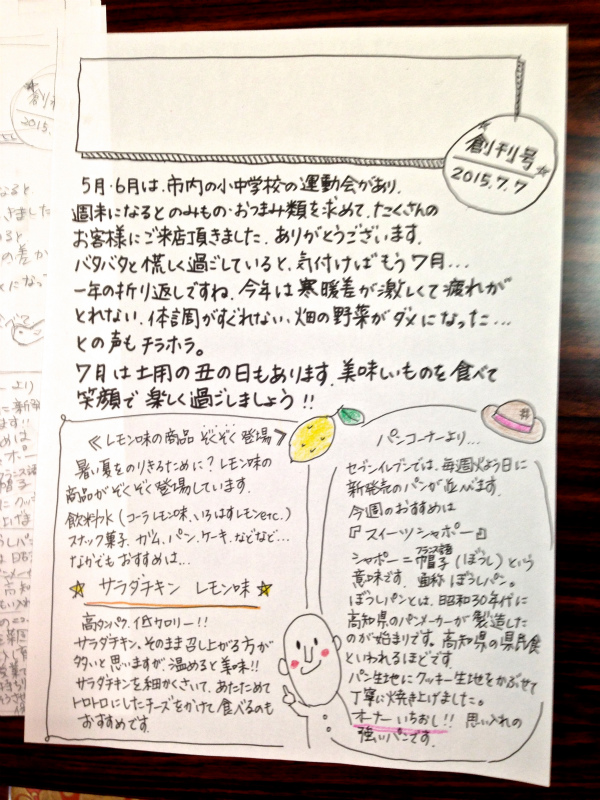 創刊号
2015.7.7
5月・6月は、市内の小中学校の運動会があり、
週末になるとのみもの・おつまみ類を求めて、たくさんの
お客様にご来店頂きました。ありがとうございます。
バタバタと慌しく過ごしていると、気付けばもう7月…
一年の折り返しですね。今年は寒暖差が激しくて疲れが
とれない、体調がすぐれない、畑の野菜がダメになった…
との声もチラホラ。
7月は土用の丑の日もあります。美味しいものを食べて
笑顔で楽しく過ごしましょう!!
≪レモン味の商品 ぞくぞく登場≫
暑い夏をのりきるために?レモン味の
商品がぞくぞく登場しています。
飲料水(コーラレモン味、いろはすレモンetc.)
スナック菓子、ガム、パン、ケーキ、などなど…
なかでもおすすめは…
☆ サラダチキン レモン味 ☆
高タンパク、低カロリー!!
サラダチキン、そのまま召し上がる方が
多いと思いますが、温めると美味!!
サラダチキンを細かくさいて、あたためて
トロトロにしたチーズをかけて食べるのも
おすすめです。
パンコーナーより…
セブンイレブンでは、毎週火よう日に
新発売のパンが並べます。
今週のおすすめは
『スイーツシャポー』
フランス語
シャポー=帽子(ぼうし)という
意味です。通称ぼうしパン。
ぼうしパンとは、昭和30年代に
高知県のパンメーカーが製造した
のが始まりです。高知県の県民食
といわれるほどです。
パン生地にクッキー生地をかぶせて
丁寧に焼き上げました。
オーナーいちおし!! 思い入れの
強いパンです。